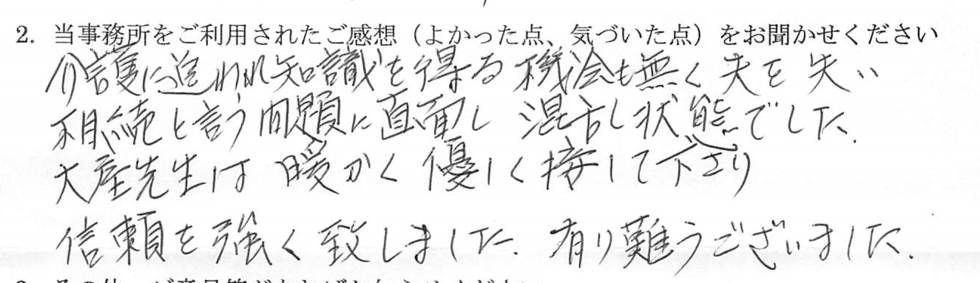 2. 当事務所をご利用されたご感想（よかった点、気づいた点）をお聞かせください
介護に追われ知識を得る機会も無く夫を失い
相続と言う問題に直面し 混乱し状態でした。
大産先生は 暖かく優しく接して下さり
信頼を強く致しました。有り難うございました。